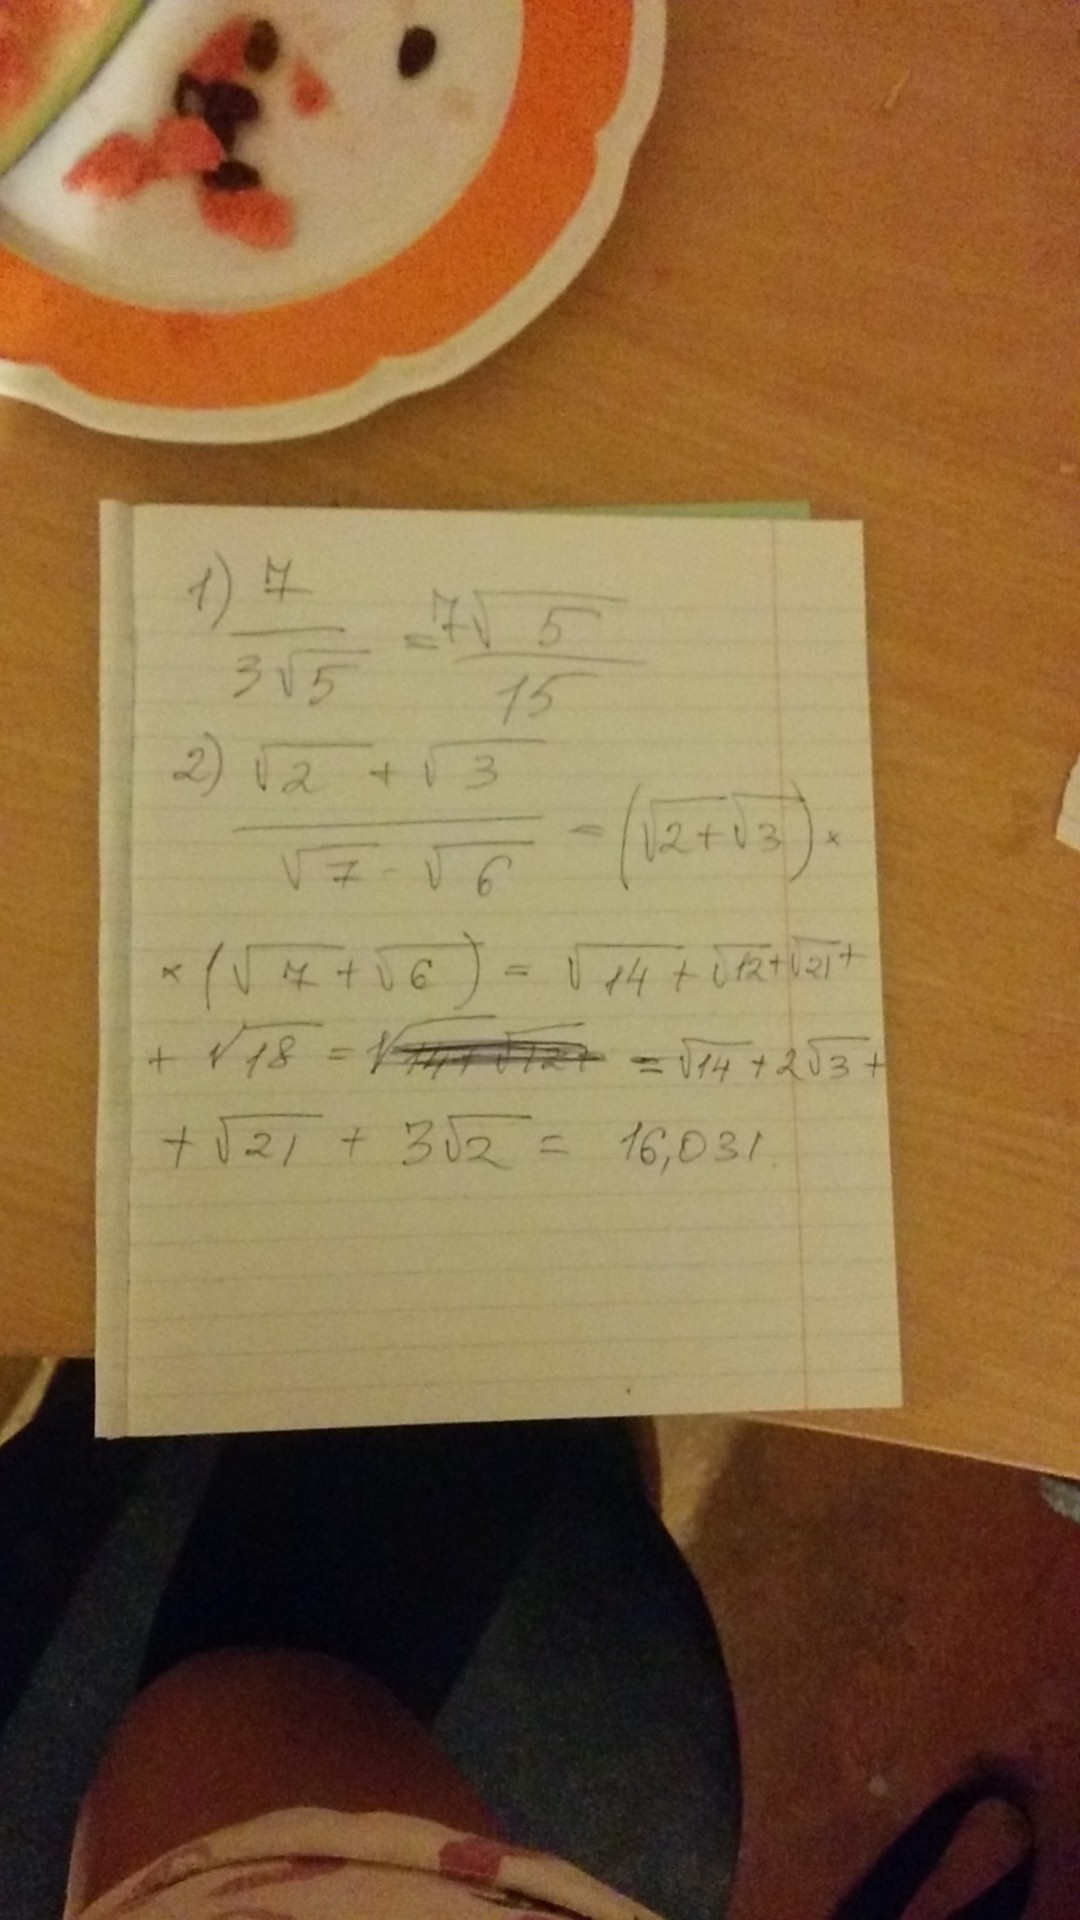 1) 7/(3√5) = 7√5/15
2) (√2 + √3)/(√7 - √6) = (√2+√3) ×
× (√7 + √6) = √14 + √12 + √21 +
+ √18 = √14 + √12 + = √14 + 2√3 +
+ √21 + 3√2 = 16,031.